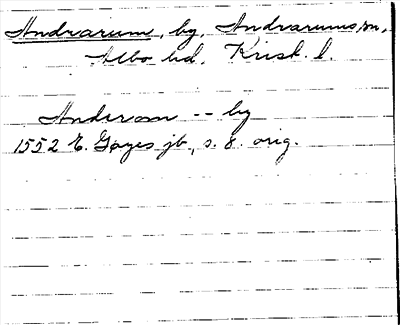 Andrarum, by, Andrarums sn,
Albo hd, Krist. l.
Anderom -- by
1552 E. Gøyes jb, s. 8. orig.